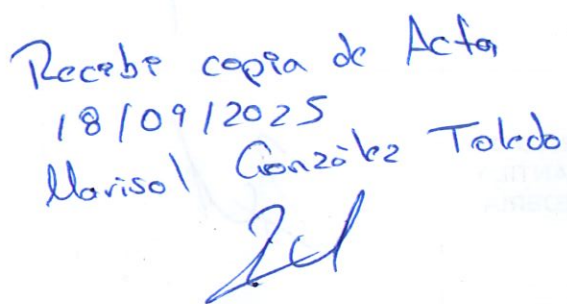 Recibi copia de Acta
18/09/2025
Marisol González Toledo